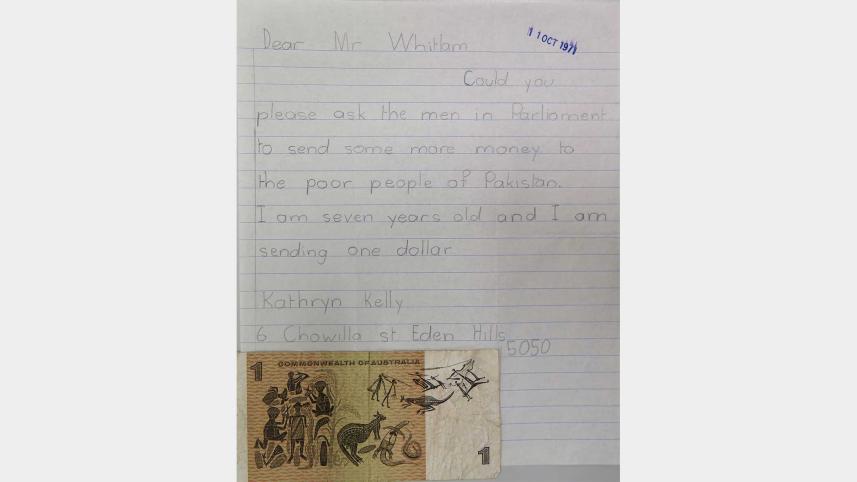 Dear Mr Whitlam
11 OCT 1971
Could you
please ask the men in Parliament
to send some more money to
the poor people of Pakistan.
I am seven years old and I am
sending one dollar
Kathryn Kelly
6 Chowilla st Eden Hills
5050
1 COMMONWEALTH OF AUSTRALIA
1